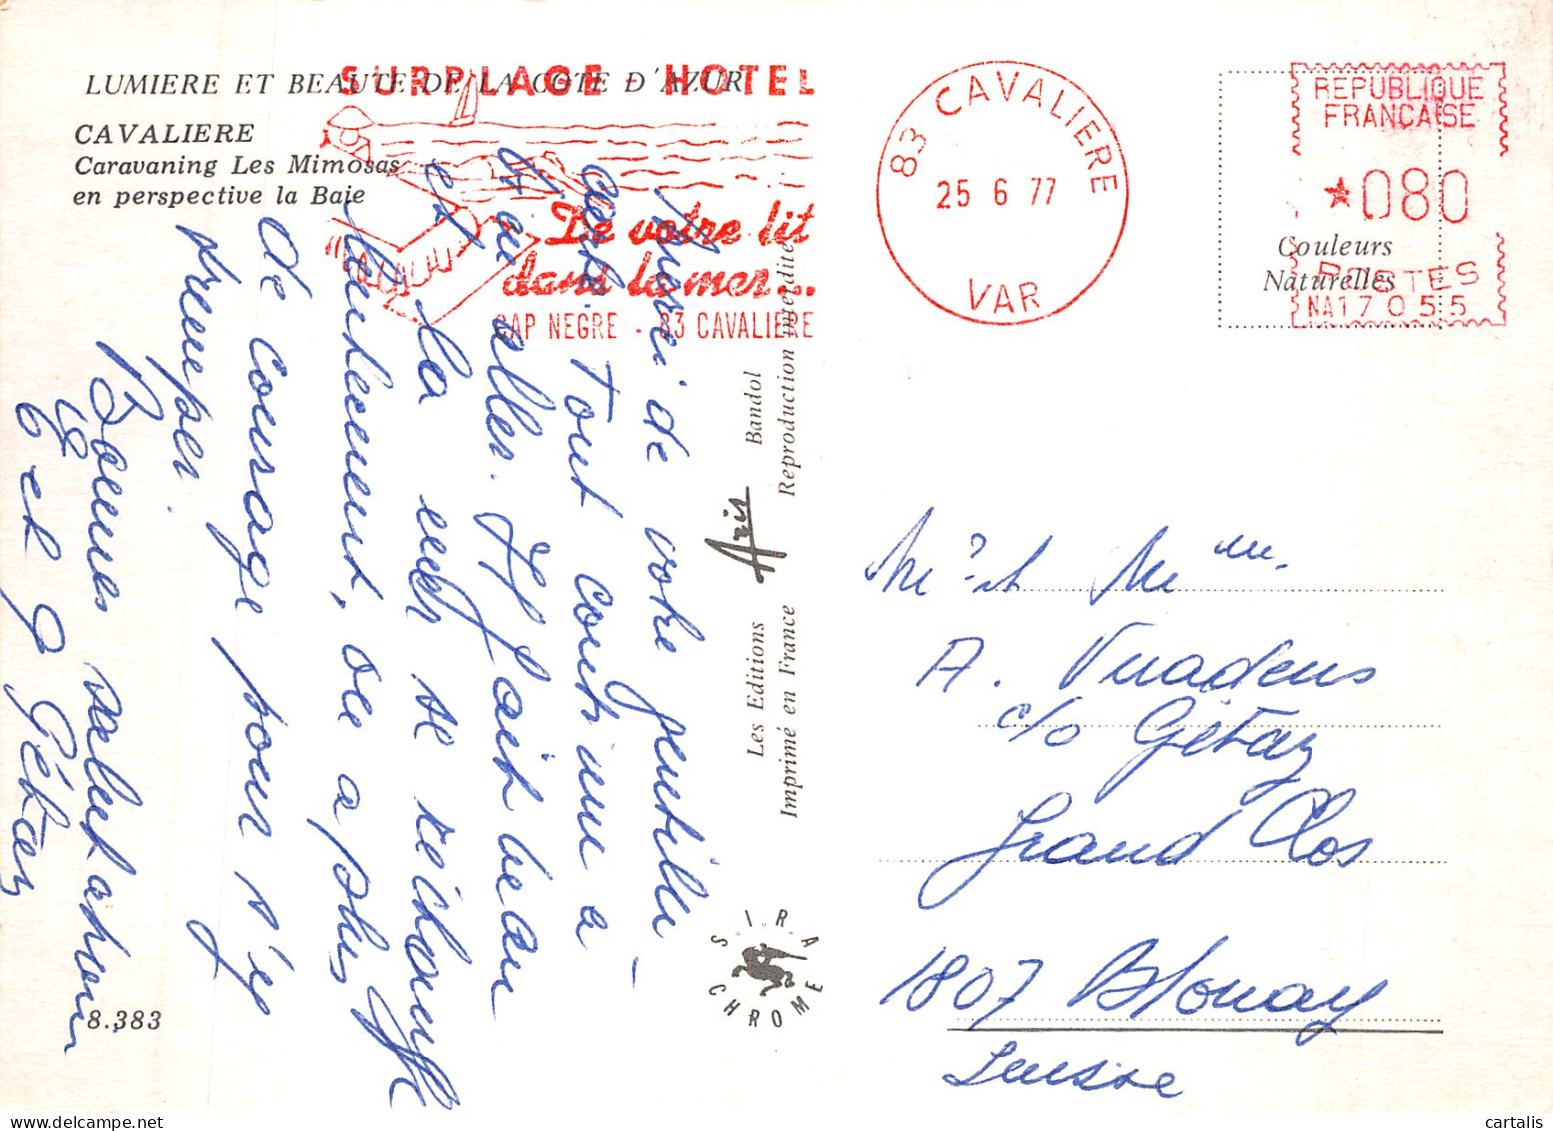 LUMIERE ET BEAUTE DE LA COTE D'AZUR
CAVALIERE
Caravaning Les Mimosas
en perspective la Baie
SURPLAGE - HOTEL
De votre lit
dans la mer...
CAP NEGRE - 83 CAVALIERE
83 CAVALIERE
25 6 77
VAR
REPUBLIQUE
FRANÇAISE
*080
POSTES
NA17055
Couleurs
Naturelles
Merci de votre gentille
carte. Tout court une a
trou aller. Il fait beau
et la mer se réchauffe
lentement, on a plus
de courage pour s'y
tremper.
Bonnes salutations
G et G Gétaz
Les Editions Aris Bandol
Imprimé en France Reproduction interdite
S.I.R.A
CHROME
8.383
Mr et Mme
A. Vuadens
c/o Gétaz
Grand Clos
1807 Blonay
Suisse
cartalis